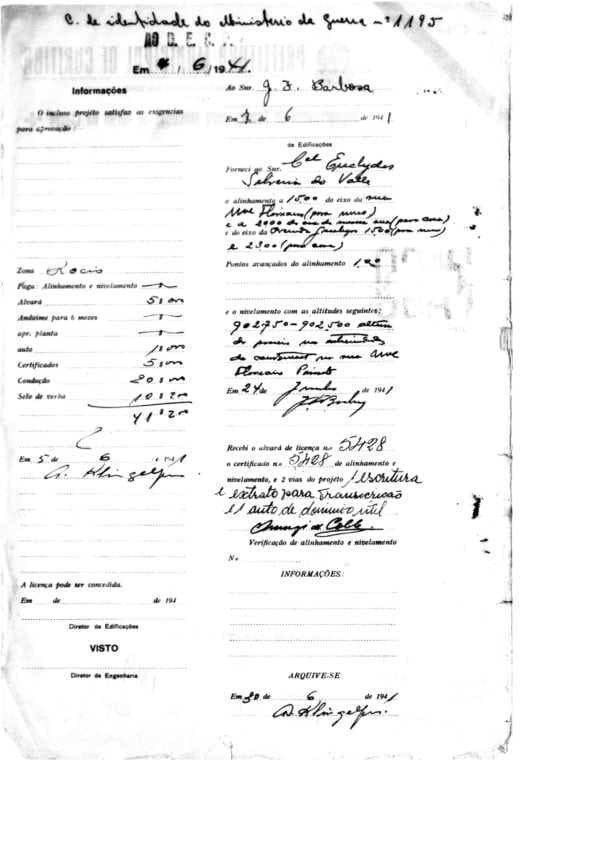 C. de identidade do Ministerio da Guerra nº 1195
AO D. E.
Em 6/1941
Informações
O incluso projéto satisfaz as exigencias
para aprovação:
Zona Rocio
Paga: Alinhamento e nivelamento
Alvará 5$000
Andaime para 6 mezes
apr. planta
auto 1$000
Certificados 5$000
Condução 20$000
Selo de verba 10$200
41$200
Em 5 de 6 de 1941
A. Klingelfus
A licença pode ser concedida.
Em de de 194
Diretor de Edificações
VISTO
Diretor de Engenharia
Ao Snr. J. F. Barbosa
Em de 6 de 1941
de Edificações
Forneci ao Snr. Cel Euclydes
Silveira do Valle
o alinhamento a 1500 do eixo da rua
Mal Floriano (para muro)
e a 2000 do eixo da mesma rua (para casa)
e do eixo da 1500 (para muro)
e 2300 (para casa)
Pontos avançados do alinhamento 1,00
e o nivelamento com as altitudes seguintes:
902.750 - 902.500
do
do na rua Mal
Floriano Peixoto
Em 24 de Junho de 1941
Recebi o alvará de licença n.o 5428
o certificado n.o 5428 de alinhamento e
nivelamento, e 2 vias do projéto 1 escritura
e extrato para Transcricão
e 1 auto de dominio util
Verificação de alinhamento e nivelamento
No
INFORMAÇÕES:
ARQUIVE-SE
Em 30 de 6 de 1941
A. Klingelfus.